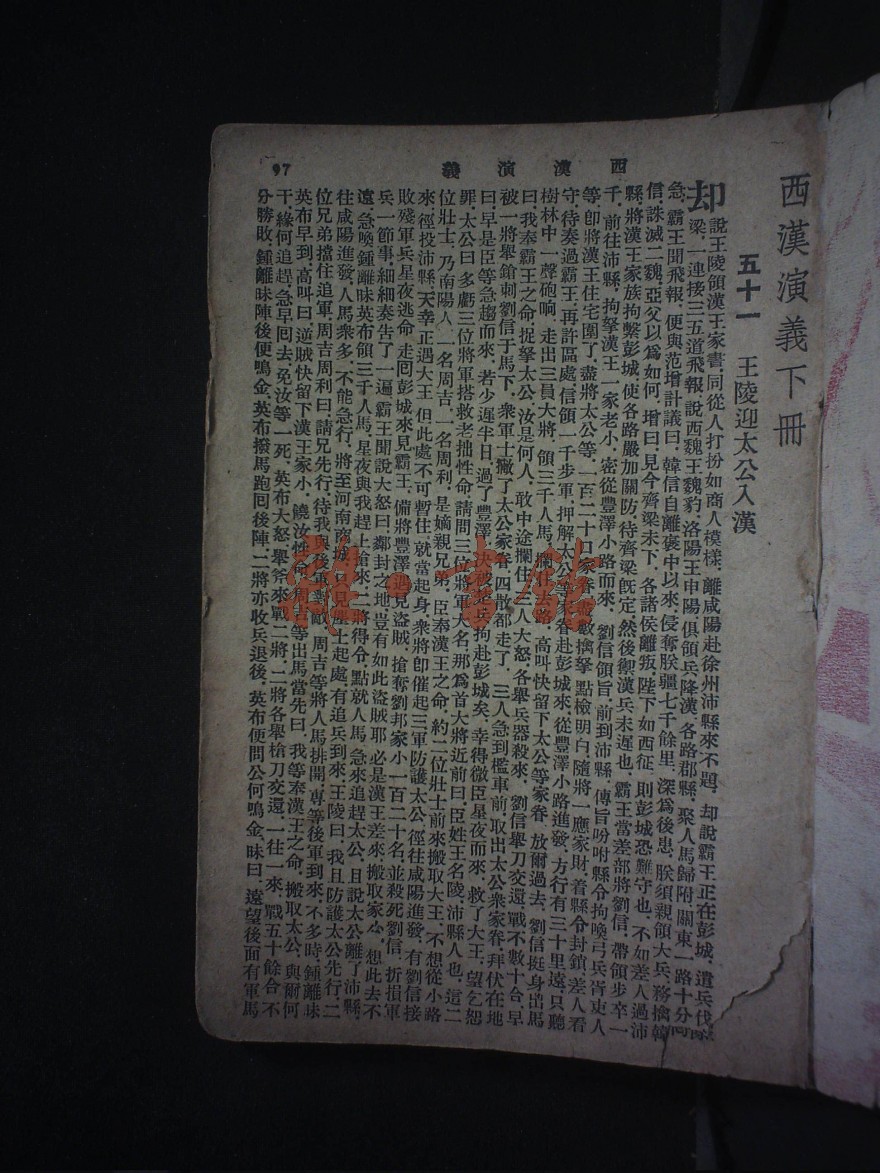 西漢演義下冊
五十一　王陵迎太公入漢
西漢演義
97
却說王陵領漢王家書，同從人打扮如商人模樣，離咸陽赴徐州沛縣來不題，却說霸王正在彭城，遣兵伐
梁，一連接三五道飛報，說西魏王魏豹，洛陽王申陽俱領兵降漢，各路郡縣，聚人馬歸附，關東一路十分
急，霸王聞飛報，便與范增計議曰，韓信自離褒中以來，侵奪朕疆七千餘里，深爲後患，朕須親領大兵，務擒韓
信，誅滅二魏，亞父以爲如何，增曰，見今齊梁未下，各諸侯離叛，陛下如西征，則彭城恐難守也，不如差人過沛
縣，將漢王家族拘繫彭城，使各路嚴加關防，待齊梁旣定，然後禦漢兵未遲也，霸王當差部將劉信，帶領步卒一
千，前往沛縣，拘拏漢王一家老小，密從豐澤小路而來，劉信領旨，前到沛縣，傳旨吩咐縣令拘喚弓兵胥吏人
等，卽將漢王住宅圍了，盡將太公等，一百二十口家眷，盡數擒拏，點檢明白，隨將一應家財，着縣令封鎖，差人看
守，待奏過霸王，再許區處，信領一千步軍，押解太公等家眷赴彭城來，從豐澤小路進發，方行有三十里遠，只聽
樹林中一聲砲响，走出三員大將，領三千人馬，攔住去路，高叫快留下太公等家眷，放爾過去，劉信挺身出馬
曰，我奉霸王之命，捉拏太公，汝是何人，敢中途攔住，三人大怒，各舉兵器殺來，劉信舉刀交還，戰不數十合，早
被一將舉鎗刺劉信于馬下，衆軍士撇了太公家眷，四散都走了，三人急到檻車前，取出太公衆家眷，拜伏在地
曰，早是臣等急趨而來，若少遲半日，過了豐澤，決被楚兵拘赴彭城矣，幸得微臣星夜而來，救了大王，望乞恕
罪，太公曰，多虧三位將軍搭救老拙性命，請問三位將軍大名，那爲首大將近前曰，臣姓王名陵，沛縣人也，這二
位壯士，乃南陽人，一名周吉，一名周利，是嫡親兄弟，臣奉漢王之命，約二位壯士前來搬取大王，不想從小路
來，徑投沛縣，天幸正遇大王，但此處不可暫住，就當起身，衆將卽催起三軍，防護太公，徑往咸陽進發，有劉信接
敗殘軍兵，星夜逃命，走囘彭城來見霸王，備將豐澤遇見盜賊，搶奪劉邦家小一百二十名，並殺死劉信，折損軍
兵一節事，細細奏告了一遍，霸王聞說大怒曰，鄰封之地，豈有如此盜賊耶，必是漢王差來搬取家小，想此去不
遠，急喚鍾離昧英布領三千人馬，星夜與我趕上搶來，二將得令，點就人馬，急來追趕太公，且說太公離了沛縣，
往咸陽進發，人馬衆多，不能急行，將至河南商城，只見塵土起處，有追兵到來，王陵曰，我且防護太公先行，二
位兄弟擋住追軍，周吉周利曰，請兄先行，待我與後軍對敵，周吉等將人馬排開，專等後軍到來，不多時，鍾離昧
英布早到，高叫曰，逆賊快留下漢王家小，饒汝性命，周吉等出馬當先曰，我等奉漢王之命，搬取太公，與爾何
干，緣何追趕，急早囘去，免汝等一死，英布大怒，舉斧來戰二將，二將各舉槍刀交還，一往一來，戰五十餘合，不
分勝敗，鍾離昧陣後便鳴金，英布撥馬跑囘後陣，二將亦收兵退後，英布便問公何鳴金，昧曰，遠望後面有軍馬